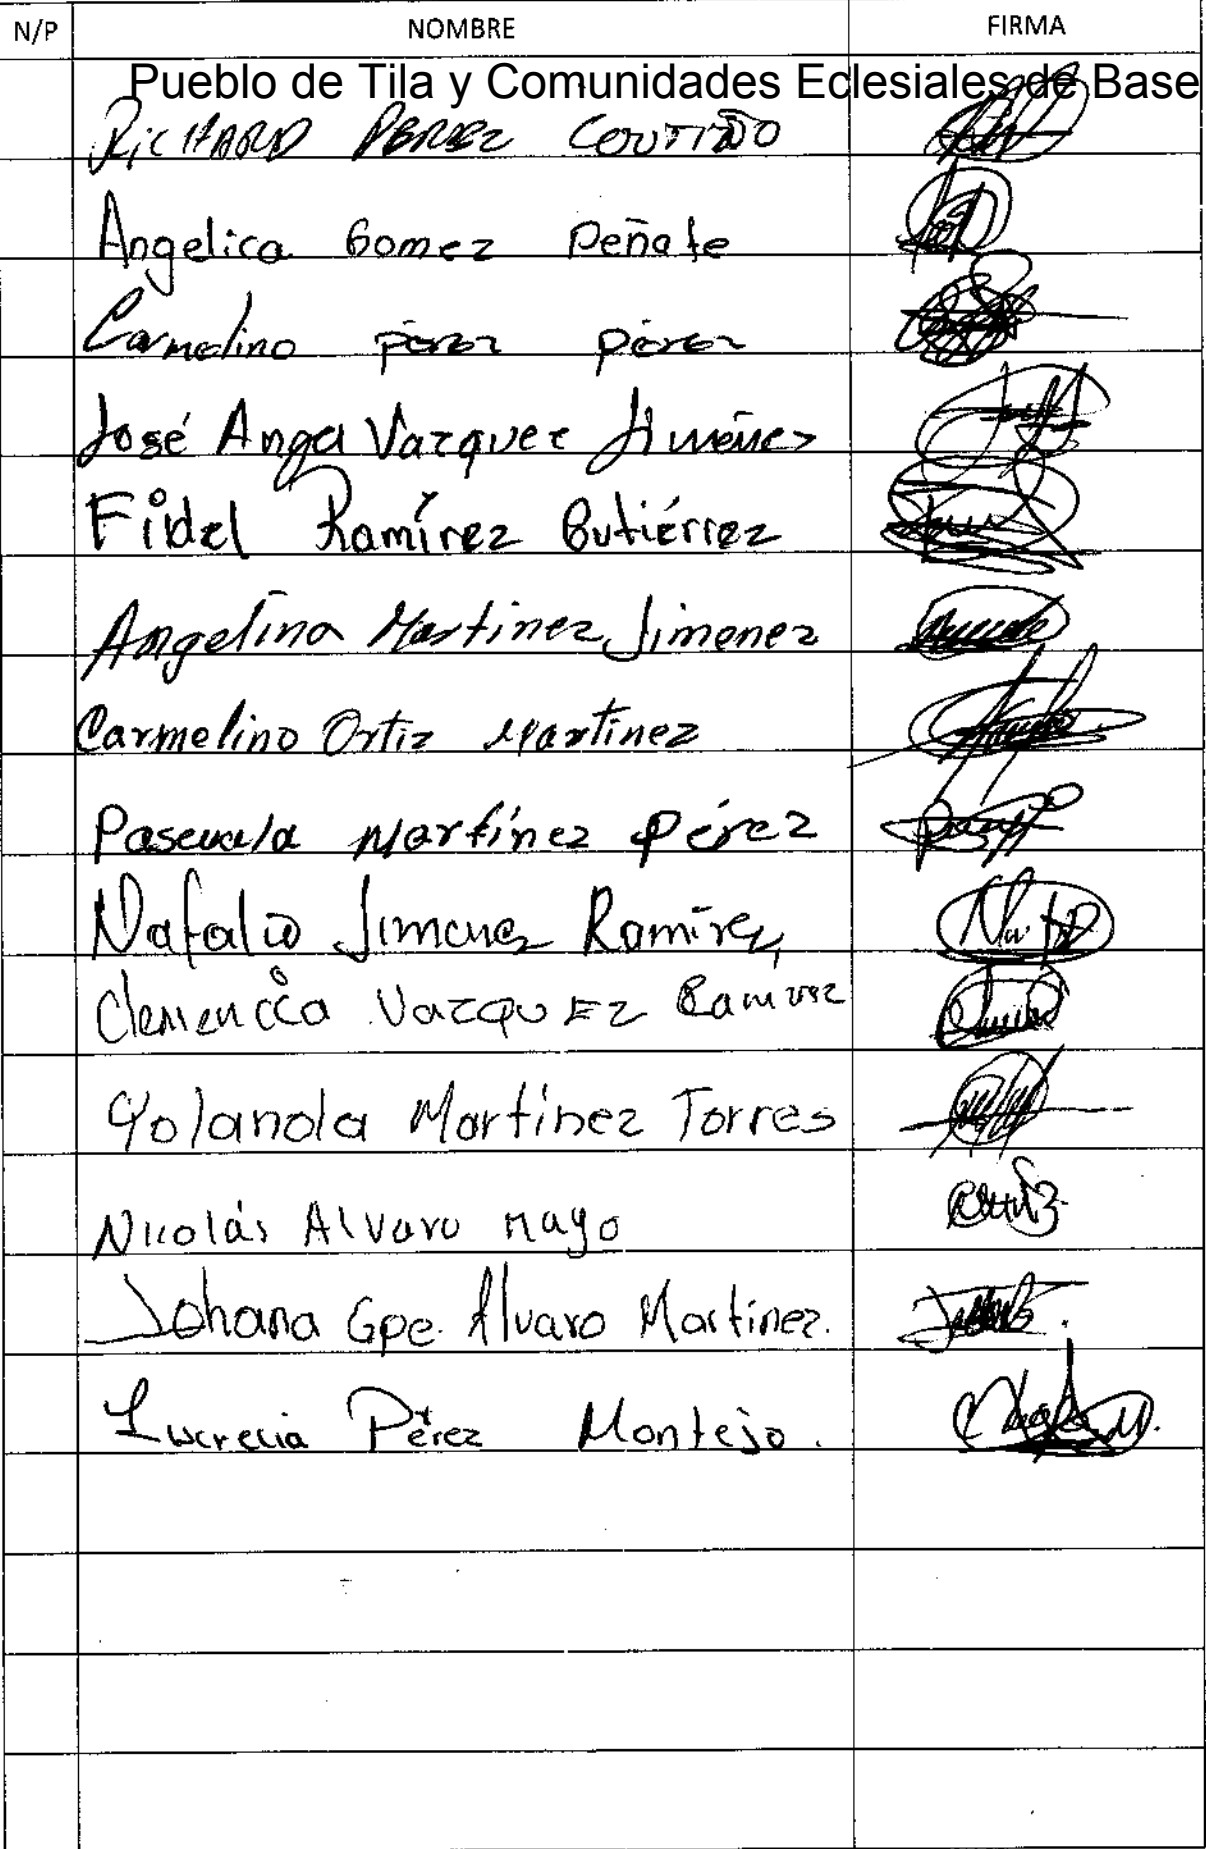 N/P NOMBRE FIRMA
Pueblo de Tila y Comunidades Eclesiales de Base
RicHARD PEREZ COUTIÑO
Angelica Gomez Peñate
Carmelino pérez pérez
José Angel Vazquez Jiménez
Fidel Ramírez Gutiérrez
Angelina Martinez Jimenez
Carmelino Ortiz Martinez
Pascuala Martínez Pérez
Natalio Jimenez Ramírez
Clemencia VazquEz Ramirez
Yolanda Martínez Torres
Nicolás Alvaro mayo
Johana Gpe. Alvaro Martinez.
Lucrecia Pérez Montejo.